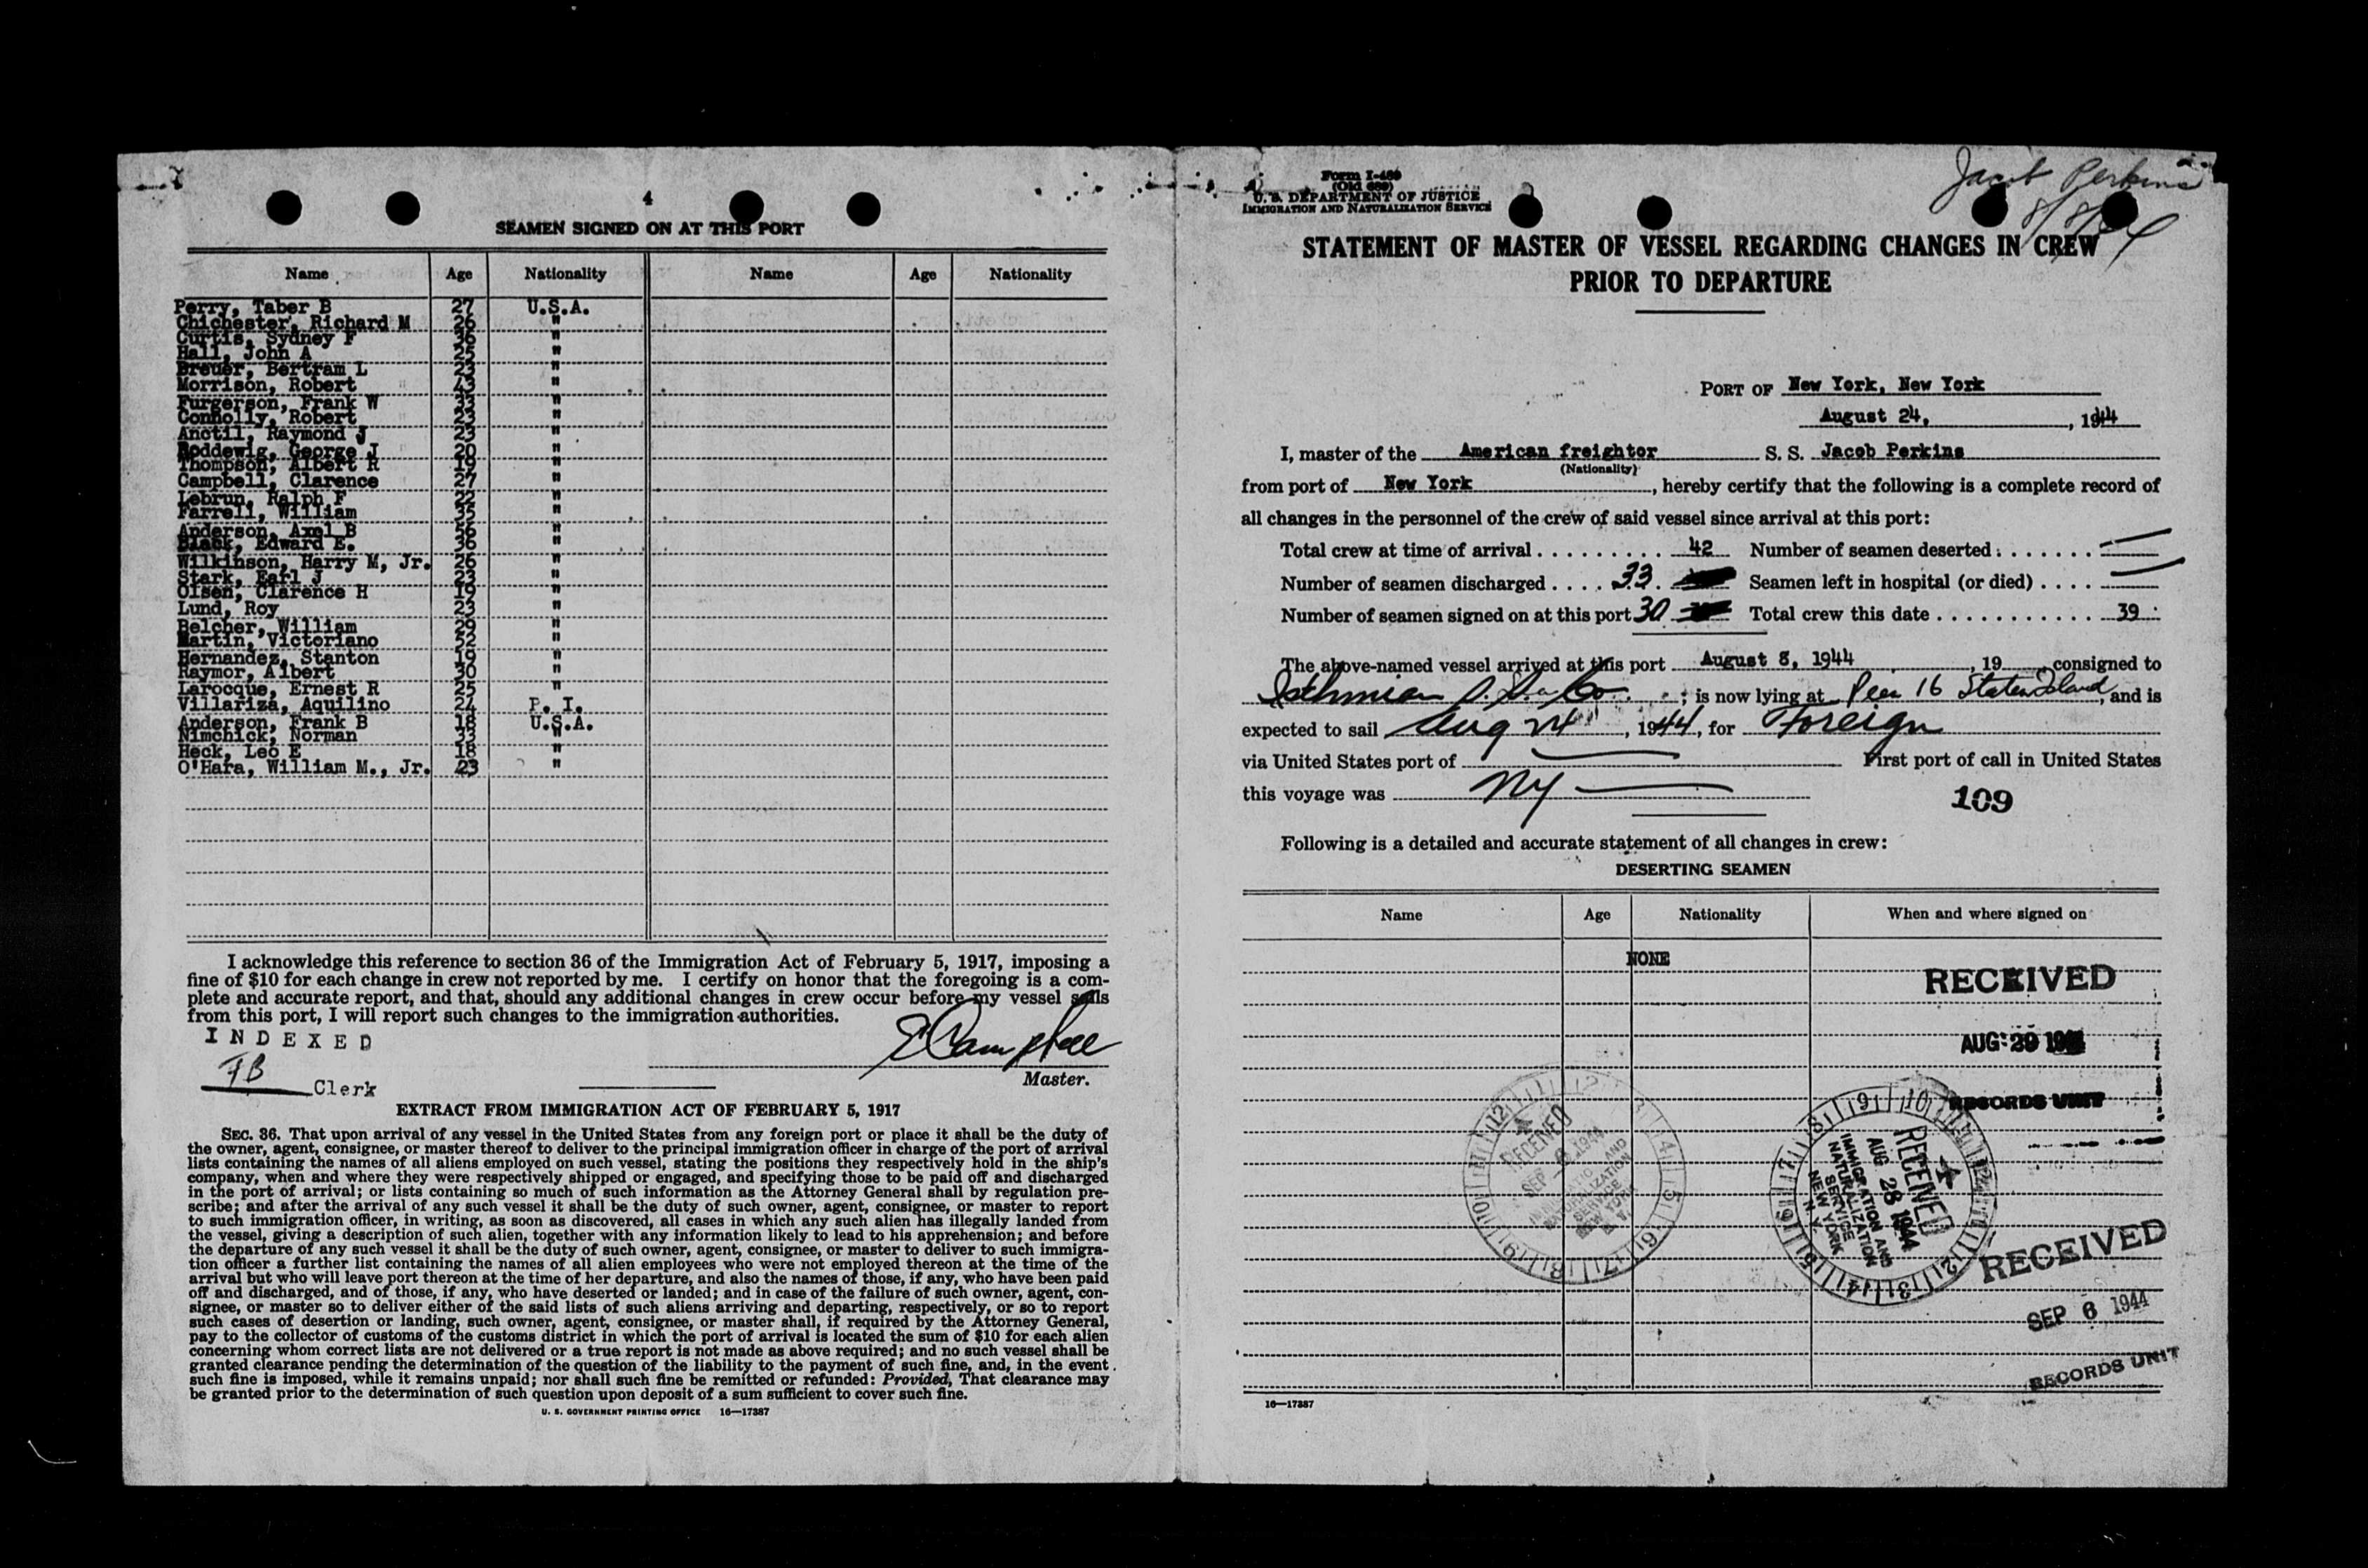 4
SEAMEN SIGNED ON AT THIS PORT
Name Age Nationality Name Age Nationality
Perry, Taber B 27 U.S.A.
Chichester, Richard M 26 "
Curtis, Sydney F 36 "
Hall, John A 25 "
Breuer, Bertram L 23 "
Morrison, Robert 43 "
Furgerson, Frank W 33 "
Connolly, Robert 23 "
Anctil, Raymond J 23 "
Boddewig, George J 20 "
Thompson, Albert R 19 "
Campbell, Clarence 27 "
Lebrun, Ralph F 22 "
Farrell, William 35 "
Anderson, Axel B 56 "
Black, Edward E. 36 "
Wilkinson, Harry M, Jr. 26 "
Stark, Earl J 23 "
Olsen, Clarence H 19 "
Lund, Roy 23 "
Belcher, William 29 "
Martin, Victoriano 52 "
Hernandez, Stanton 19 "
Raymor, Albert 30 "
Larocque, Ernest R 25 "
Villariza, Aquilino 24 P. I.
Anderson, Frank B 18 U.S.A.
Nimchick, Norman 33 "
Heck, Leo E 18 "
O'Hara, William M., Jr. 23 "
I acknowledge this reference to section 36 of the Immigration Act of February 5, 1917, imposing a
fine of $10 for each change in crew not reported by me. I certify on honor that the foregoing is a com-
plete and accurate report, and that, should any additional changes in crew occur before my vessel sails
from this port, I will report such changes to the immigration authorities.
INDEXED
FB Clerk
E Campbell
Master.
EXTRACT FROM IMMIGRATION ACT OF FEBRUARY 5, 1917
SEC. 36. That upon arrival of any vessel in the United States from any foreign port or place it shall be the duty of
the owner, agent, consignee, or master thereof to deliver to the principal immigration officer in charge of the port of arrival
lists containing the names of all aliens employed on such vessel, stating the positions they respectively hold in the ship's
company, when and where they were respectively shipped or engaged, and specifying those to be paid off and discharged
in the port of arrival; or lists containing so much of such information as the Attorney General shall by regulation pre-
scribe; and after the arrival of any such vessel it shall be the duty of such owner, agent, consignee, or master to report
to such immigration officer, in writing, as soon as discovered, all cases in which any such alien has illegally landed from
the vessel, giving a description of such alien, together with any information likely to lead to his apprehension; and before
the departure of any such vessel it shall be the duty of such owner, agent, consignee, or master to deliver to such immigra-
tion officer a further list containing the names of all alien employees who were not employed thereon at the time of the
arrival but who will leave port thereon at the time of her departure, and also the names of those, if any, who have been paid
off and discharged, and of those, if any, who have deserted or landed; and in case of the failure of such owner, agent, con-
signee, or master so to deliver either of the said lists of such aliens arriving and departing, respectively, or so to report
such cases of desertion or landing, such owner, agent, consignee, or master shall, if required by the Attorney General,
pay to the collector of customs of the customs district in which the port of arrival is located the sum of $10 for each alien
concerning whom correct lists are not delivered or a true report is not made as above required; and no such vessel shall be
granted clearance pending the determination of the question of the liability to the payment of such fine, and, in the event
such fine is imposed, while it remains unpaid; nor shall such fine be remitted or refunded: Provided, That clearance may
be granted prior to the determination of such question upon deposit of a sum sufficient to cover such fine.
U. S. GOVERNMENT PRINTING OFFICE 16—17387
Form I-489
(Old 689)
U. S. DEPARTMENT OF JUSTICE
IMMIGRATION AND NATURALIZATION SERVICE
Jacob Perkins
8/8/44
STATEMENT OF MASTER OF VESSEL REGARDING CHANGES IN CREW
PRIOR TO DEPARTURE
PORT OF New York, New York
August 24, , 1944
I, master of the American freightor S. S. Jacob Perkins
(Nationality)
from port of New York, hereby certify that the following is a complete record of
all changes in the personnel of the crew of said vessel since arrival at this port:
Total crew at time of arrival . . . . . . . . . 42 Number of seamen deserted . . . . . . —
Number of seamen discharged . . . . 33 Seamen left in hospital (or died) . . . . —
Number of seamen signed on at this port 30 Total crew this date . . . . . . . . . . . . 39
The above-named vessel arrived at this port August 8, 1944, 19 , consigned to
Isthmian S. S. Co. ; is now lying at Pier 16 Staten Island, and is
expected to sail Aug 24, 1944, for Foreign
via United States port of — First port of call in United States
this voyage was NY —
109
Following is a detailed and accurate statement of all changes in crew:
DESERTING SEAMEN
Name Age Nationality When and where signed on
NONE
RECEIVED
AUG 29 1944
RECORDS UNIT
RECEIVED
SEP 6 1944
IMMIGRATION AND
NATURALIZATION
SERVICE
NEW YORK
N. Y.
RECEIVED
AUG 28 1944
IMMIGRATION AND
NATURALIZATION
SERVICE
NEW YORK
N. Y.
RECEIVED
SEP 6 1944
RECORDS UNIT
16—17387